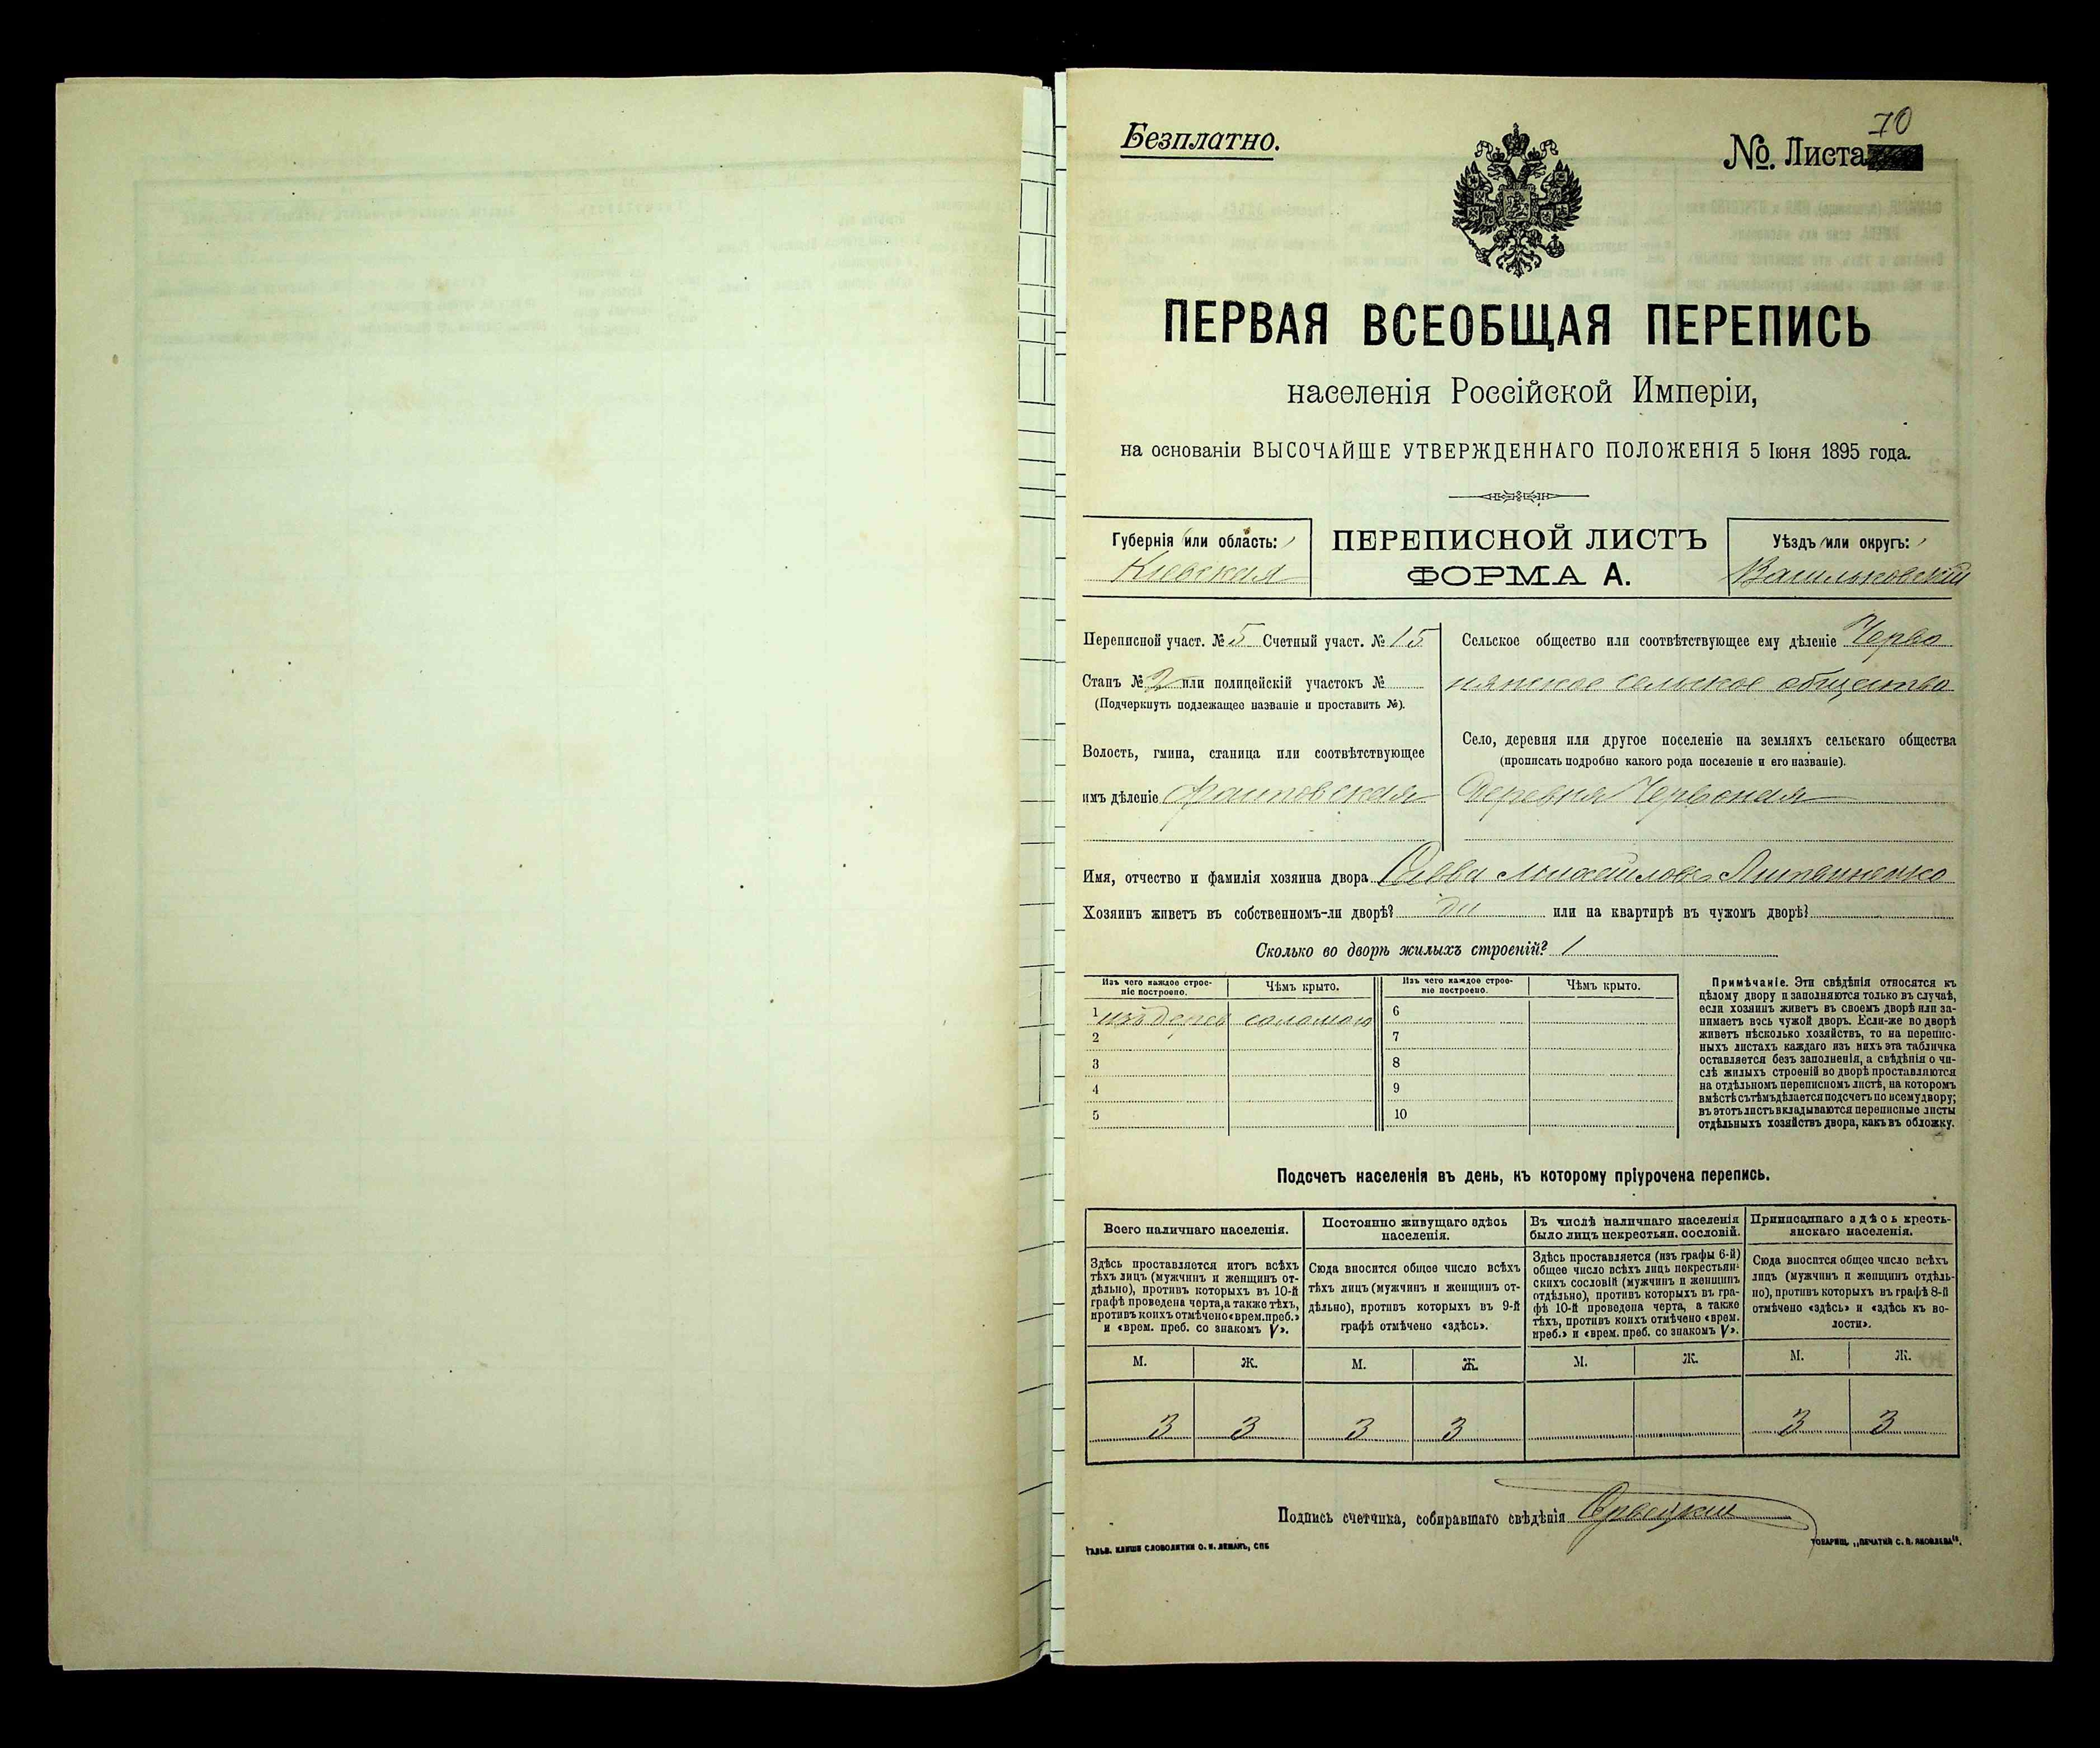 Безплатно.
70
№ Листа
ПЕРВАЯ ВСЕОБЩАЯ ПЕРЕПИСЬ
населенія Россійской Имперіи,
на основаніи ВЫСОЧАЙШЕ УТВЕРЖДЕННАГО ПОЛОЖЕНІЯ 5 Іюня 1895 года.
Губернія или область:
Кіевская
ПЕРЕПИСНОЙ ЛИСТЪ
ФОРМА А.
Уѣздъ или округъ:
Васильковскій
Переписной участ. № 5 Счетный участ. № 15
Станъ № 2 или полицейскій участокъ №
(Подчеркнуть подлежащее названіе и проставить №).
Волость, гмина, станица или соотвѣтствующее
имъ дѣленіе
Сельское общество или соотвѣтствующее ему дѣленіе Черво
нянское сельское общество
Село, деревня или другое поселеніе на земляхъ сельскаго общества
(прописать подробно какого рода поселеніе и его названіе).
Деревня Червоная
Имя, отчество и фамилія хозяина двора Савва Михайловъ Литвиненко
Хозяинъ живетъ въ собственномъ-ли дворѣ? да или на квартирѣ въ чужомъ дворѣ?
Сколько во дворѣ жилыхъ строеній? 1
Изъ чего каждое строе-
ніе построено.
Чѣмъ крыто.
Изъ чего каждое строе-
ніе построено.
Чѣмъ крыто.
1 изъ дерев соломою 6
2 7
3 8
4 9
5 10
Примѣчаніе. Эти свѣдѣнія относятся къ
цѣлому двору и заполняются только въ случаѣ,
если хозяинъ живетъ въ своемъ дворѣ или за-
нимаетъ весь чужой дворъ. Если-же во дворѣ
живетъ нѣсколько хозяйствъ, то на перепис-
ныхъ листахъ каждаго изъ нихъ эта табличка
оставляется безъ заполненія, а свѣдѣнія о чи-
слѣ жилыхъ строеній во дворѣ проставляются
на отдѣльномъ переписномъ листѣ, на которомъ
вмѣстѣ съ тѣмъ дѣлается подсчетъ по всему двору;
въ этотъ листъ вкладываются переписные листы
отдѣльныхъ хозяйствъ двора, какъ въ обложку.
Подсчетъ населенія въ день, къ которому пріурочена перепись.
Всего наличнаго населенія.
Здѣсь проставляется итогъ всѣхъ
тѣхъ лицъ (мужчинъ и женщинъ от-
дѣльно), противъ которыхъ въ 10-й
графѣ проведена черта, а также тѣхъ,
противъ коихъ отмѣчено «врем. преб.»
и «врем. преб. со знакомъ V».
Постоянно живущаго здѣсь
населенія.
Сюда вносится общее число всѣхъ
тѣхъ лицъ (мужчинъ и женщинъ от-
дѣльно), противъ которыхъ въ 9-й
графѣ отмѣчено «здѣсь».
Въ числѣ наличнаго населенія
было лицъ некрестьян. сословій.
Здѣсь проставляется (изъ графы 6-й)
общее число всѣхъ лицъ некрестьян-
скихъ сословій (мужчинъ и женщинъ
отдѣльно), противъ которыхъ въ гра-
фѣ 10-й проведена черта, а также
тѣхъ, противъ коихъ отмѣчено «врем.
преб.» и «врем. преб. со знакомъ V».
Приписаннаго здѣсь кресть-
янскаго населенія.
Сюда вносится общее число всѣхъ
лицъ (мужчинъ и женщинъ отдѣль-
но), противъ которыхъ въ графѣ 8-й
отмѣчено «здѣсь» и «здѣсь къ во-
лости».
М. Ж. М. Ж. М. Ж. М. Ж.
3 3 3 3 3 3
Подпись счетчика, собиравшаго свѣдѣнія
ГАЛЬВ. КЛИШЕ СЛОВОЛИТНИ О. И. ЛЕМАНЪ, СПБ
ТОВАРИЩ. „ПЕЧАТНЯ С. П. ЯКОВЛЕВА“.